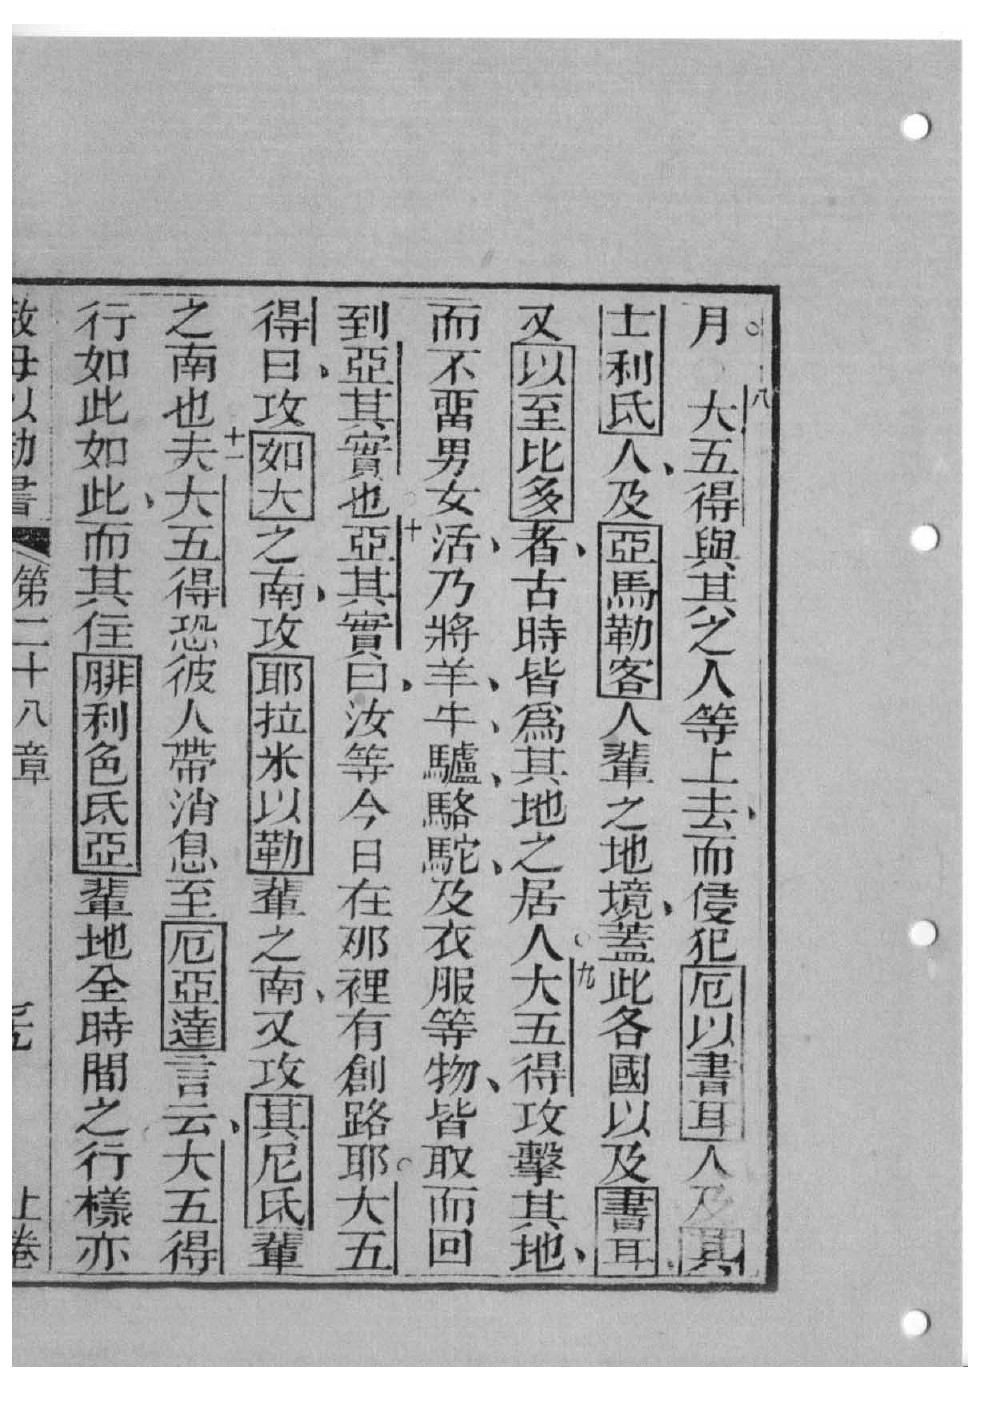 月○八大五得與其之人等上去、而侵犯厄以書耳人及其
士利氏人、及亞馬勒客人輩之地境、蓋此各國以及書耳、
又以至比多者、古時皆爲其地之居人○九大五得攻擊其地、
而不畱男女活、乃將羊、牛、驢、駱駝、及衣服等物、皆取而回
到亞其實也○十亞其實曰、汝等今日在那裡有創路耶○大五
得曰、攻如大之南、攻耶拉米以勒輩之南、又攻其尼氏輩
之南也十一夫大五得恐彼人帶消息至厄亞達言云、大五得
行如此如此、而其住腓利色氏亞輩地全時間之行樣亦
撒母以勒書 第二十八章 上卷